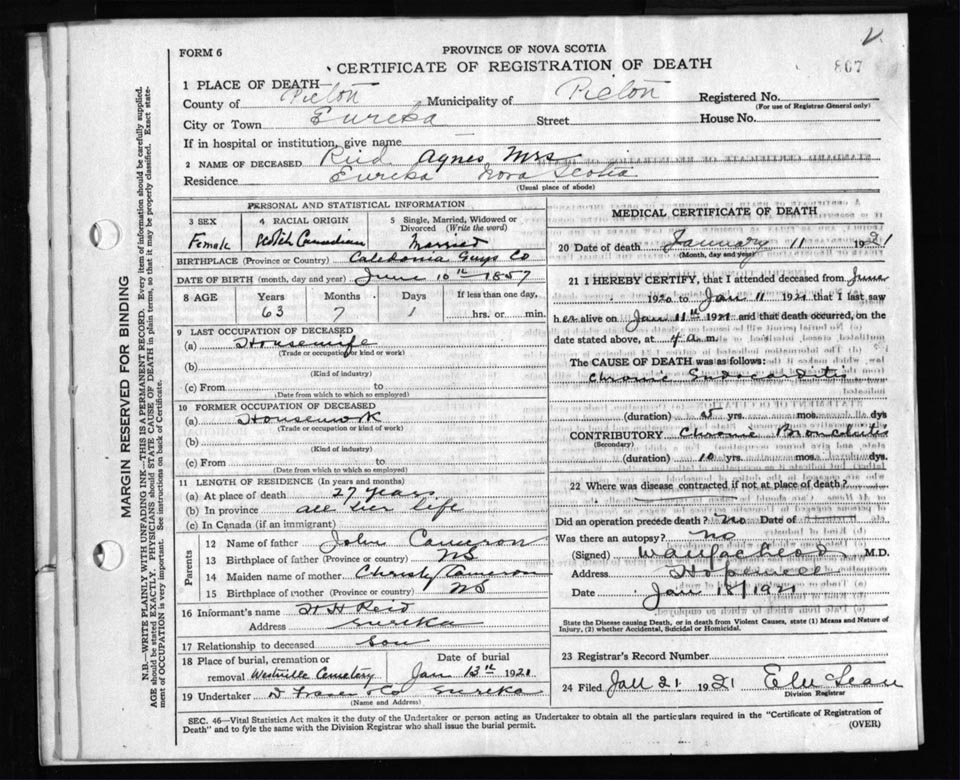 FORM 6
PROVINCE OF NOVA SCOTIA
CERTIFICATE OF REGISTRATION OF DEATH
807
1 PLACE OF DEATH
County of Pictou Municipality of Pictou Registered No.
(For use of Registrar General only)
City or Town Eureka Street House No.
If in hospital or institution, give name
2 NAME OF DECEASED Reid Agnes Mrs
Residence Eureka Nova Scotia
(Usual place of abode)
PERSONAL AND STATISTICAL INFORMATION
3 SEX 4 RACIAL ORIGIN 5 Single, Married, Widowed or Divorced (Write the word)
Female Scotch Canadian Married
BIRTHPLACE (Province or Country) Caledonia Guys Co
DATE OF BIRTH (month, day and year) June 10th 1857
8 AGE Years Months Days If less than one day,
63 7 1 hrs. or min.
9 LAST OCCUPATION OF DECEASED
(a) Housewife
(Trade or occupation or kind or work)
(b)
(Kind of industry)
(c) From to
(Date from which to which so employed)
10 FORMER OCCUPATION OF DECEASED
(a) Housework
(Trade or occupation or kind of work)
(b)
(Kind of industry)
(c) From to
(Date from which to which so employed)
11 LENGTH OF RESIDENCE (In years and months)
(a) At place of death 27 years
(b) In province all her life
(c) In Canada (if an immigrant)
Parents
12 Name of father John Cameron
13 Birthplace of father (Province or country) NS
14 Maiden name of mother Christy Cameron
15 Birthplace of mother (Province or country) NS
16 Informant's name H H Reid
Address Eureka
17 Relationship to deceased Son
18 Place of burial, cremation or removal Westville Cemetery Date of burial Jan 13th 1921
19 Undertaker D Fraser & Co Eureka
(Name and Address)
MEDICAL CERTIFICATE OF DEATH
20 Date of death January 11 1921
(Month, day and year)
21 I HEREBY CERTIFY, that I attended deceased from June
1920 to Jan 11 1921 that I last saw
her alive on Jan 11th 1921 and that death occurred, on the
date stated above, at 4 a.m.
The CAUSE OF DEATH was as follows:
Chronic Endocarditis
(duration) 5 yrs. mos. dys
CONTRIBUTORY Chronic Bronchitis
(Secondary)
(duration) 10 yrs. mos. dys.
22 Where was disease contracted if not at place of death?
Did an operation precede death? No Date of
Was there an autopsy? No
(Signed) M.D.
Address Hopewell
Date Jan 18/1921
State the Disease causing Death, or in death from Violent Causes, state (1) Means and Nature of
Injury, (2) whether Accidental, Suicidal or Homicidal.
23 Registrar's Record Number
24 Filed Jan 21 1921
Division Registrar
SEC. 46—Vital Statistics Act makes it the duty of the Undertaker or person acting as Undertaker to obtain all the particulars required in the "Certificate of Registration of
Death" and to fyle the same with the Division Registrar who shall issue the burial permit.
(OVER)
MARGIN RESERVED FOR BINDING
N.B.—WRITE PLAINLY, WITH UNFADING INK—THIS IS A PERMANENT RECORD. Every item of information should be carefully supplied.
AGE should be stated EXACTLY. PHYSICIANS should STATE CAUSE OF DEATH in plain terms, so that it may be properly classified. Exact state-
ment of OCCUPATION is very important. See instructions on back of Certificate.